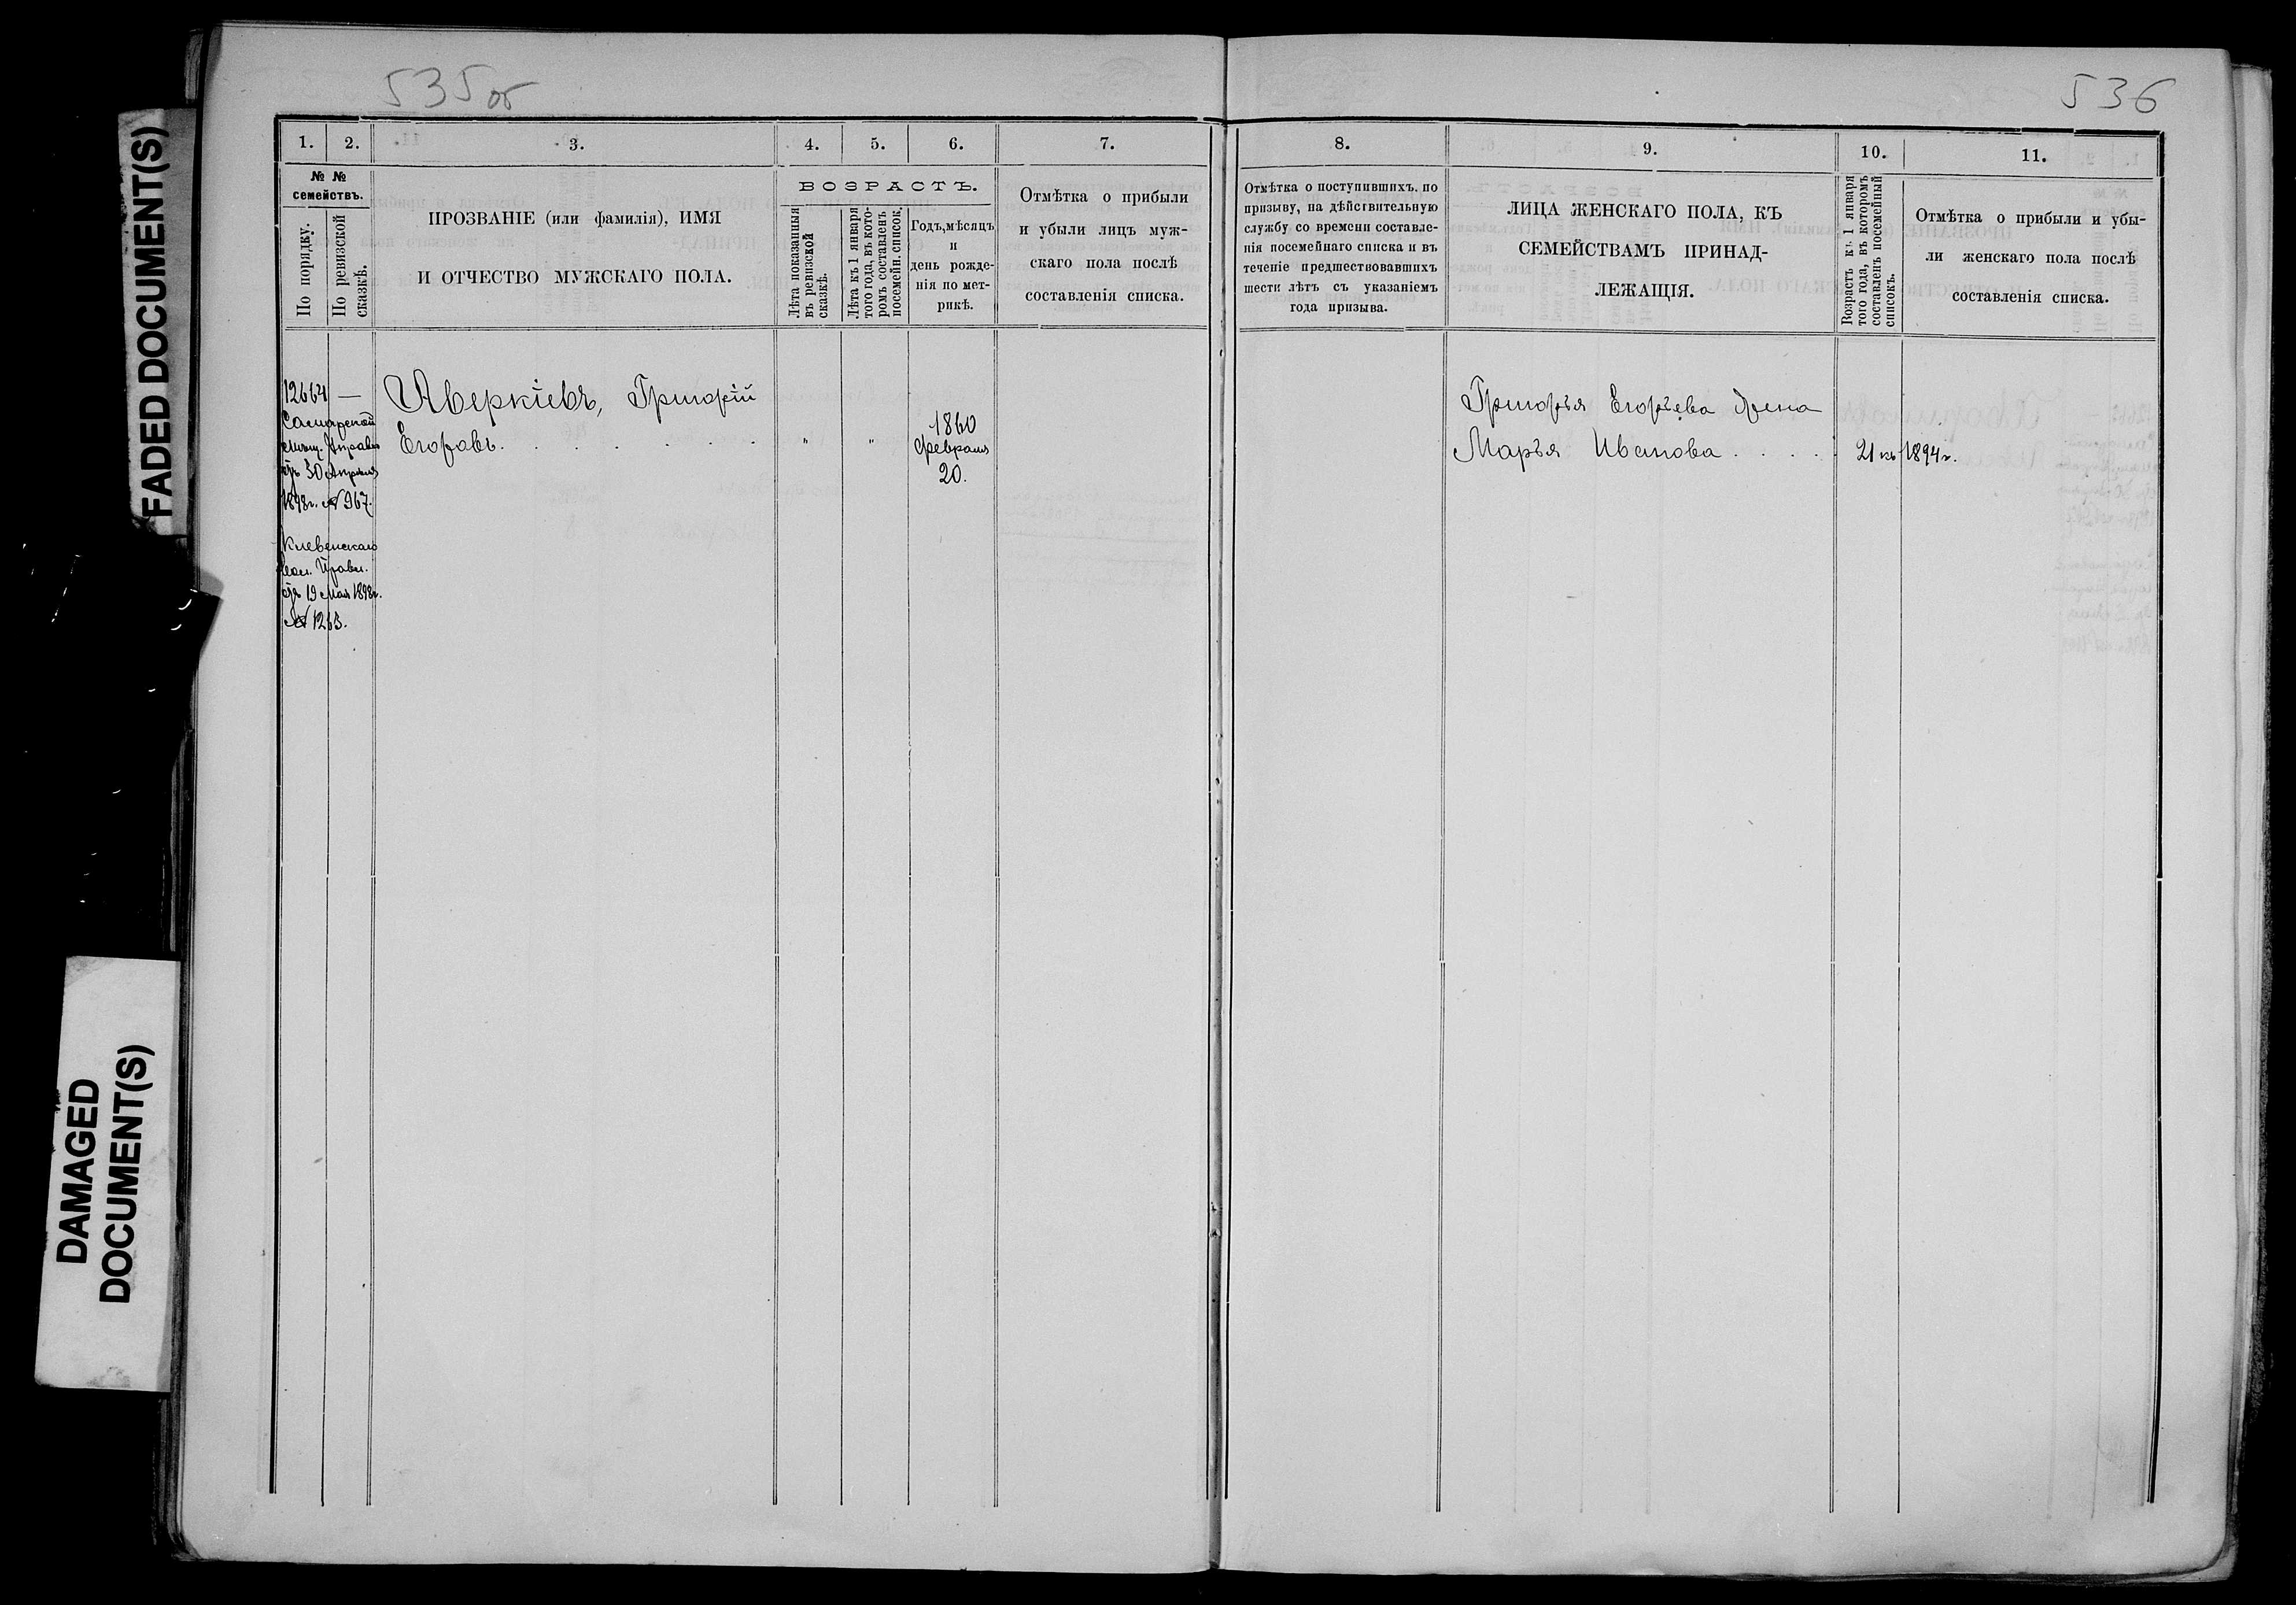 FADED DOCUMENT(S)
DAMAGED
DOCUMENT(S)
535 об
1.
2.
3.
4.
5.
6.
7.
№ №
семействъ.
По порядку.
По ревизской
сказкѣ.
ПРОЗВАНІЕ (или фамилія), ИМЯ
И ОТЧЕСТВО МУЖСКАГО ПОЛА.
ВОЗРАСТЪ.
Лѣта показанныя
въ ревизской
сказкѣ.
Лѣта къ 1 января
того года, въ кото-
ромъ составленъ
посемейн. список.
Годъ, мѣсяцъ
и
день рожде-
нія по мет-
рикѣ.
Отмѣтка о прибыли
и убыли лицъ муж-
скаго пола послѣ
составленія списка.
12664 —
Самарской
мѣщ. Управы
отъ 30 Апрѣля
1898 г. № 967.
Клевенскаго
Вол. Правл.
отъ 19 Мая 1898 г.
№ 1263.
Аверкіевъ, Григорій
Егоровъ. . . . . . . .
" "
1860
Февраля
20.
536
8.
9.
10.
11.
Отмѣтка о поступившихъ, по
призыву, на дѣйствительную
службу со времени составле-
нія посемейнаго списка и въ
теченіе предшествовавшихъ
шести лѣтъ съ указаніемъ
года призыва.
ЛИЦА ЖЕНСКАГО ПОЛА, КЪ
СЕМЕЙСТВАМЪ ПРИНАД-
ЛЕЖАЩІЯ.
Возрастъ къ 1 января
того года, въ которомъ
составленъ посемейный
списокъ.
Отмѣтка о прибыли и убы-
ли женскаго пола послѣ
составленія списка.
Григорья Егорьева жена
Марья Иванова . . . . 21 къ 1894 г.